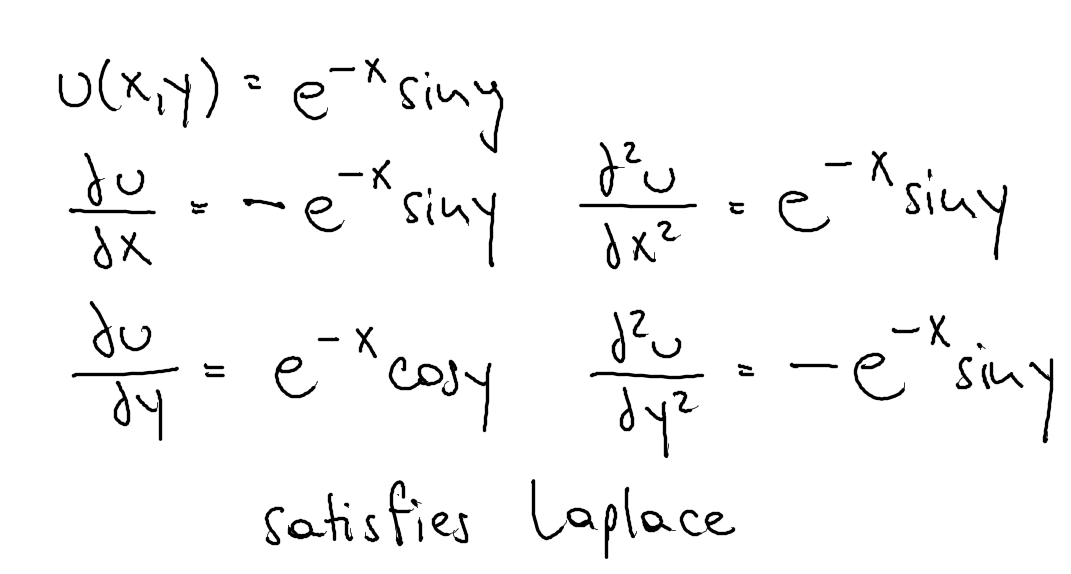 u(x,y) = e^{-x} sin y
∂u/∂x = -e^{-x} sin y    ∂²u/∂x² = e^{-x} sin y
∂u/∂y = e^{-x} cos y    ∂²u/∂y² = -e^{-x} sin y
satisfies Laplace